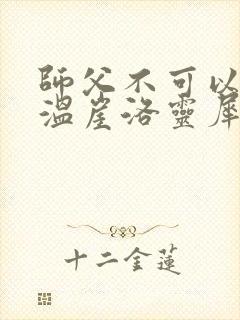 師父不可以
溫崖洛靈犀
十二金蓮